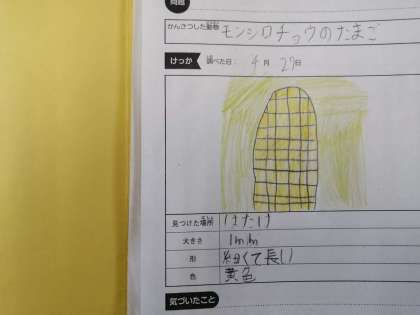 問題
かんさつした動物 モンシロチョウのたまご
けっか 調べた日： 4月 27日
見つけた場所 はたけ
大きさ 1mm
形 細くて長い
色 黄色
気づいたこと